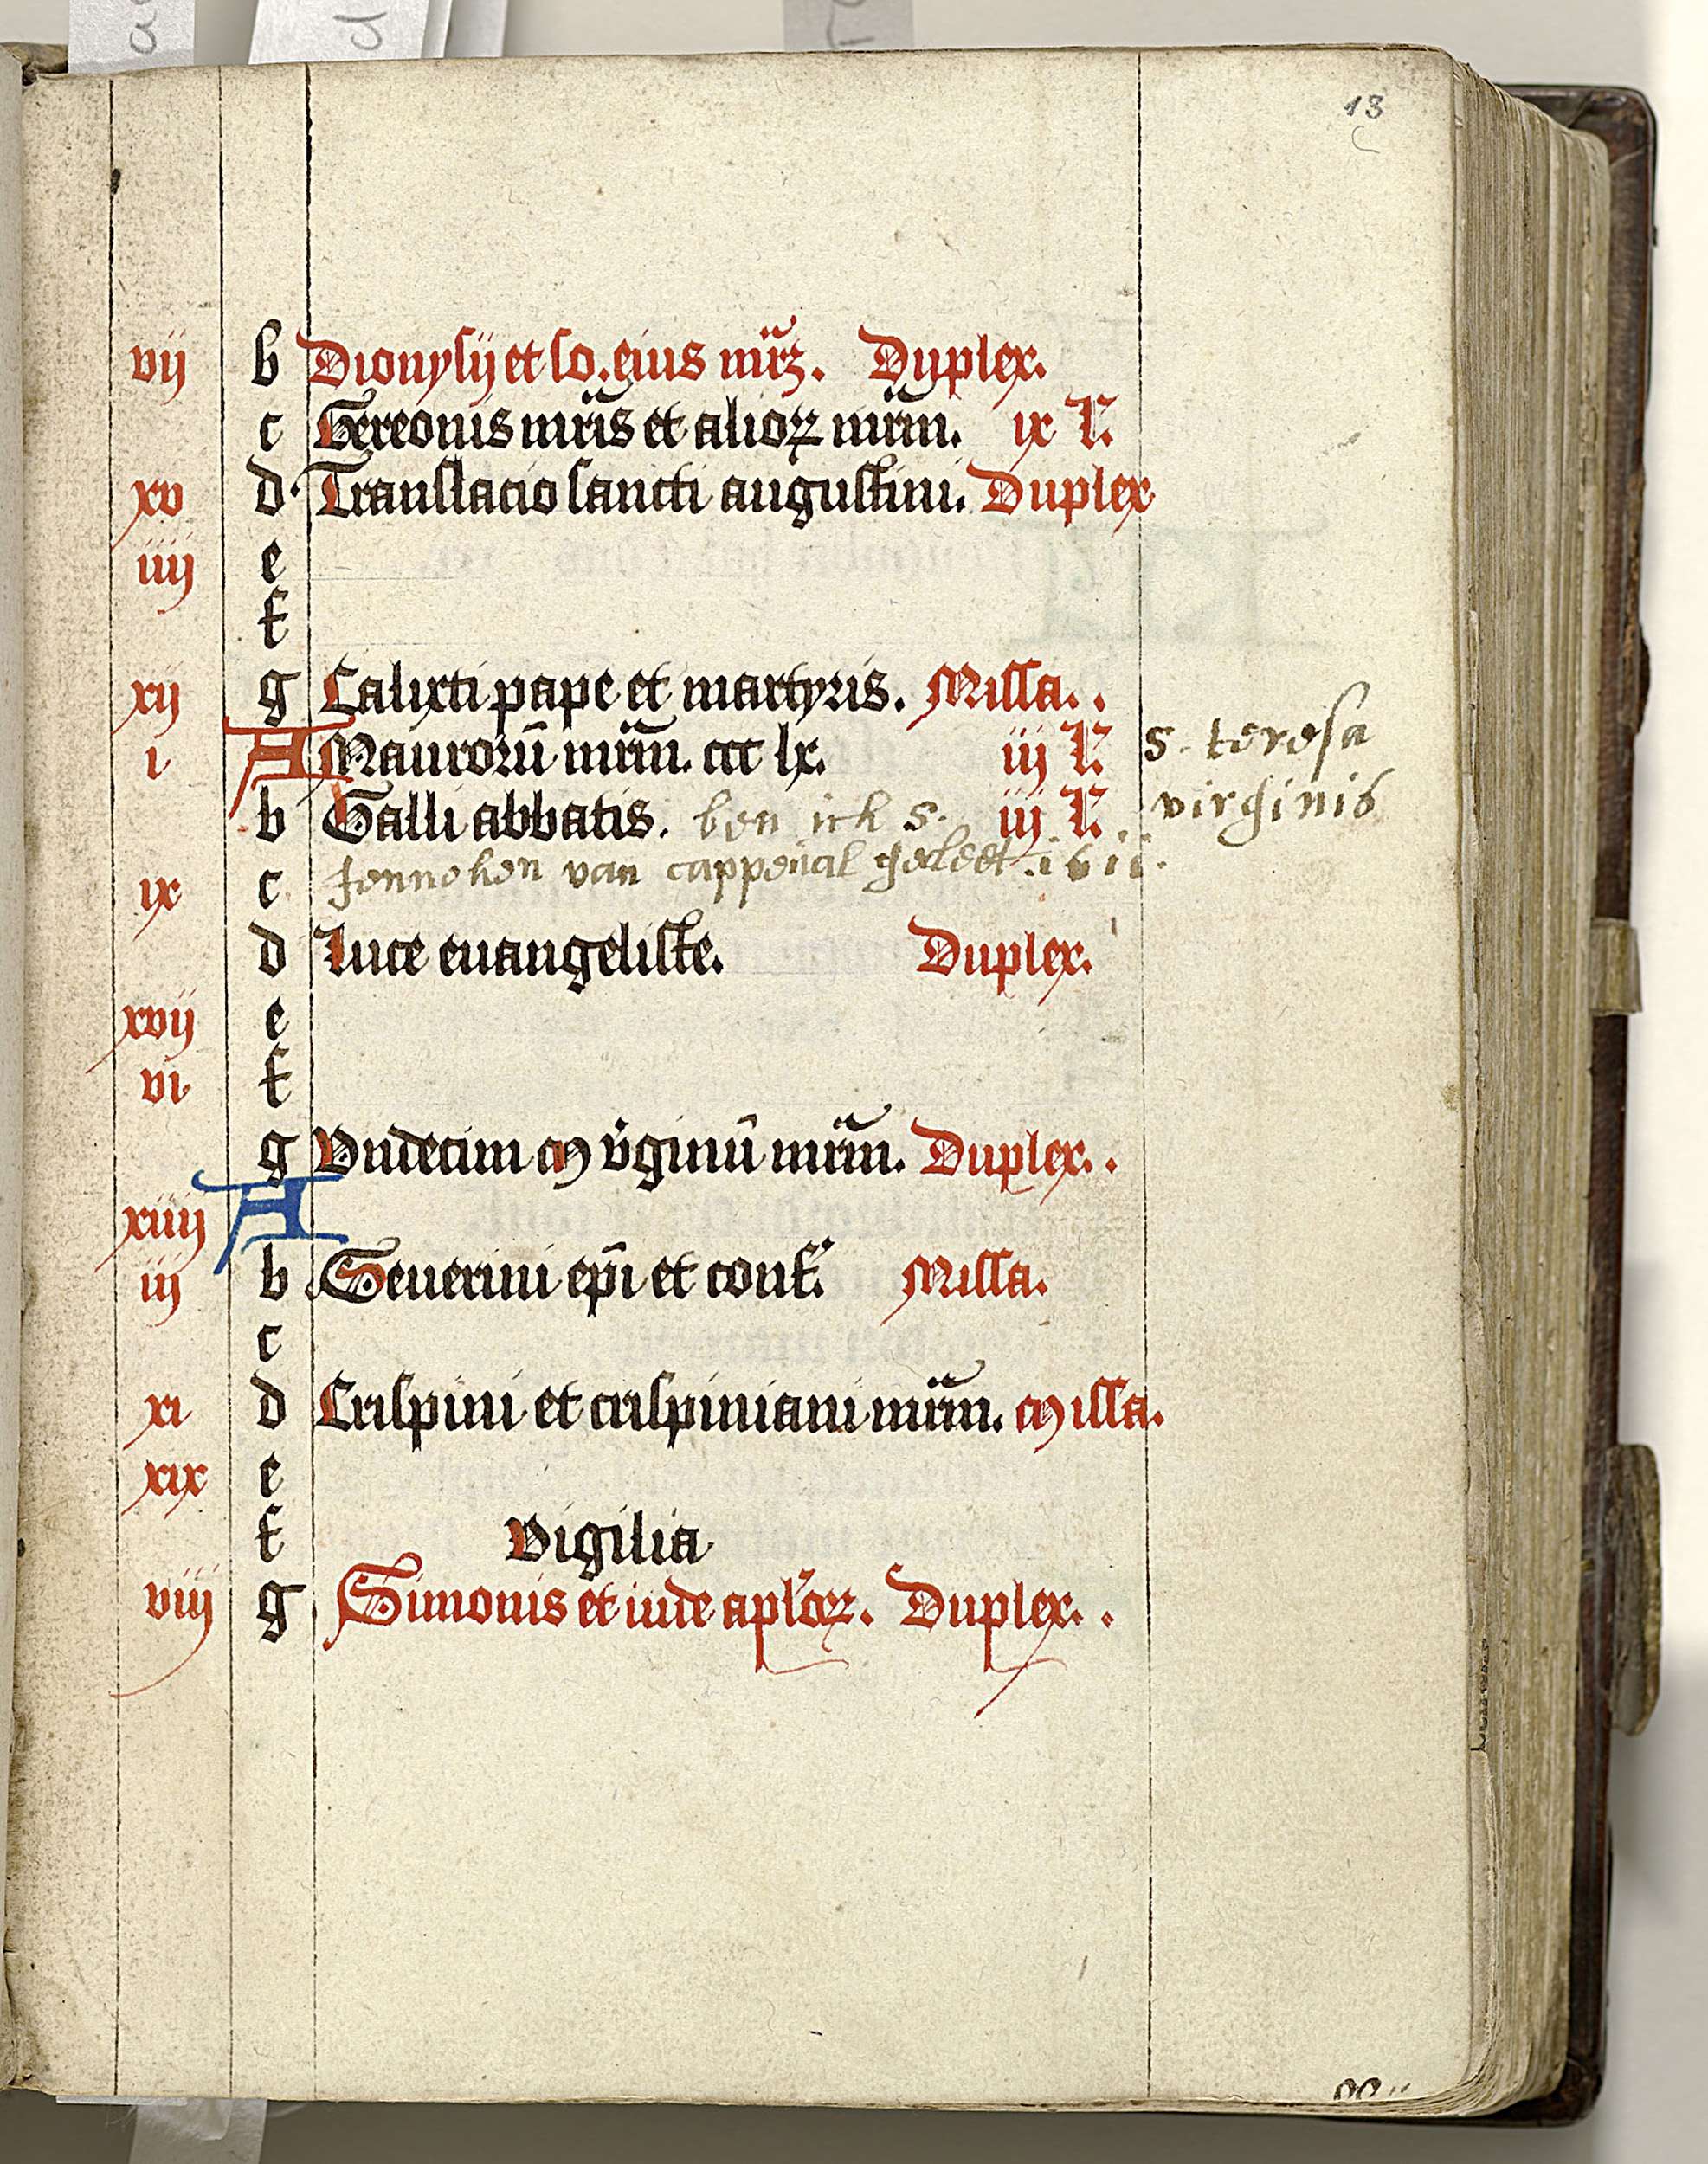 13
vij b Dionysij et so. eius mr̄ꝫ. Duplex.
c Gereonis mr̄is et alioꝝ mr̄m. ix L.
xv d Translacio sancti augustini. Duplex
iiij e
f
xij g Calixti pape et martyris. Missa.
i A Maurorū mr̄m. ccc lx. iij L. s. teresa
b Galli abbatis. ben ick s. iij L. virginis
ix c Jenneken van cappenal gecleet. 1611.
d Luce euangeliste. Duplex.
xvij e
vi f
g Vndecim m v̄ginū mr̄m. Duplex.
xiiij A
iij b Seuerini ep̄i et conf. Missa.
c
xi d Crispini et crispiniani mr̄m. missa.
xix e
f Vigilia
viij g Simonis et iude apl'oꝝ. Duplex.